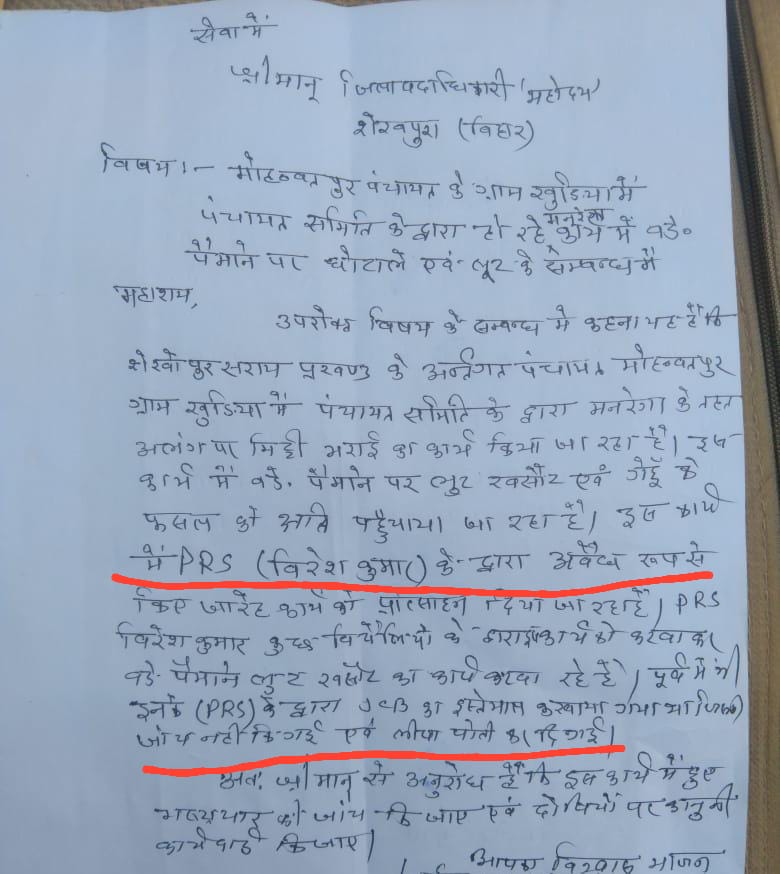 सेवा में
श्रीमान् जिलापदाधिकारी महोदय
शेखपुरा (बिहार)
विषय :- मोहब्बतपुर पंचायत के ग्राम खुडिया में
पंचायत समिति के द्वारा हो रहे मनरेगा कार्य में बडे.
पैमाने पर घोटाले एवं लूट के सम्बन्ध में
महाशय,
उपरोक्त विषय के सम्बन्ध में कहना यह है कि
शेखोपुरसराय प्रखण्ड के अर्न्तगत पंचायत मोहब्बतपुर
ग्राम खुडिया में पंचायत समिति के द्वारा मनरेगा के तहत
अलंग पर मिट्टी भराई का कार्य किया जा रहा है। इस
कार्य में बडे. पैमाने पर लुट खसौट एवं गेहूँ के
फसल को क्षति पहुँचाया जा रहा है। इस कार्य
में PRS (विरेश कुमार) के द्वारा अवैध रूप से
किए जा रहे कार्य को प्रोत्साहन दिया जा रहा है। PRS
विरेश कुमार कुछ बिचौलियो के द्वारा इस कार्य को करवा कर
बडे. पैमाने लुट खसौट का कार्य करवा रहे हैं। पूर्व में भी
इनके (PRS) के द्वारा JCB का इस्तेमाल करवाया गया था जिसकी
जांच नही कि गई एवं लीपा पोती कर दि गई।
अतः श्रीमान् से अनुरोध है कि इस कार्य में हुए
भ्रष्टाचार की जांच कि जाए एवं दोषियों पर कानुनी
कार्यवाई कि जाए।
आपका विश्वास भाजन